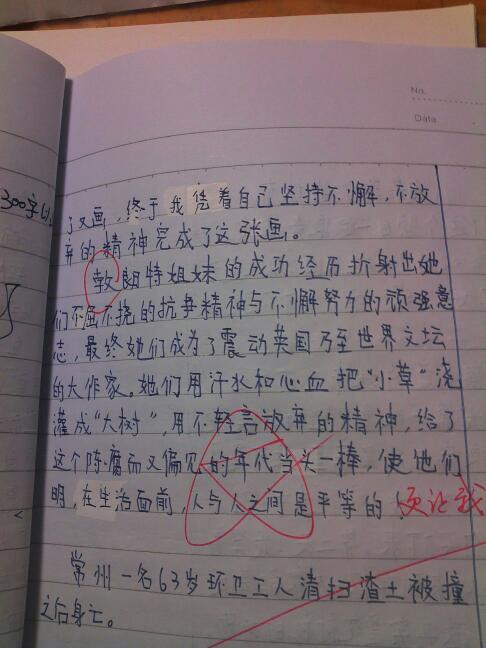 No.
Data
300字以
了又画，终于我凭着自己坚持不懈，不放
弃的精神完成了这张画。
敦朗特姐妹的成功经历折射出她
们不屈不挠的抗争精神与不懈努力的顽强意
志，最终她们成为了震动英国乃至世界文坛
的大作家。她们用汗水和心血把“小草”浇
灌成“大树”，用不轻言放弃的精神，给了
这个陈腐而又偏见的年代当头一棒，使他们
明，在生活面前，人与人之间是平等的！
常州一名63岁环卫工人清扫渣土被撞
之后身亡。